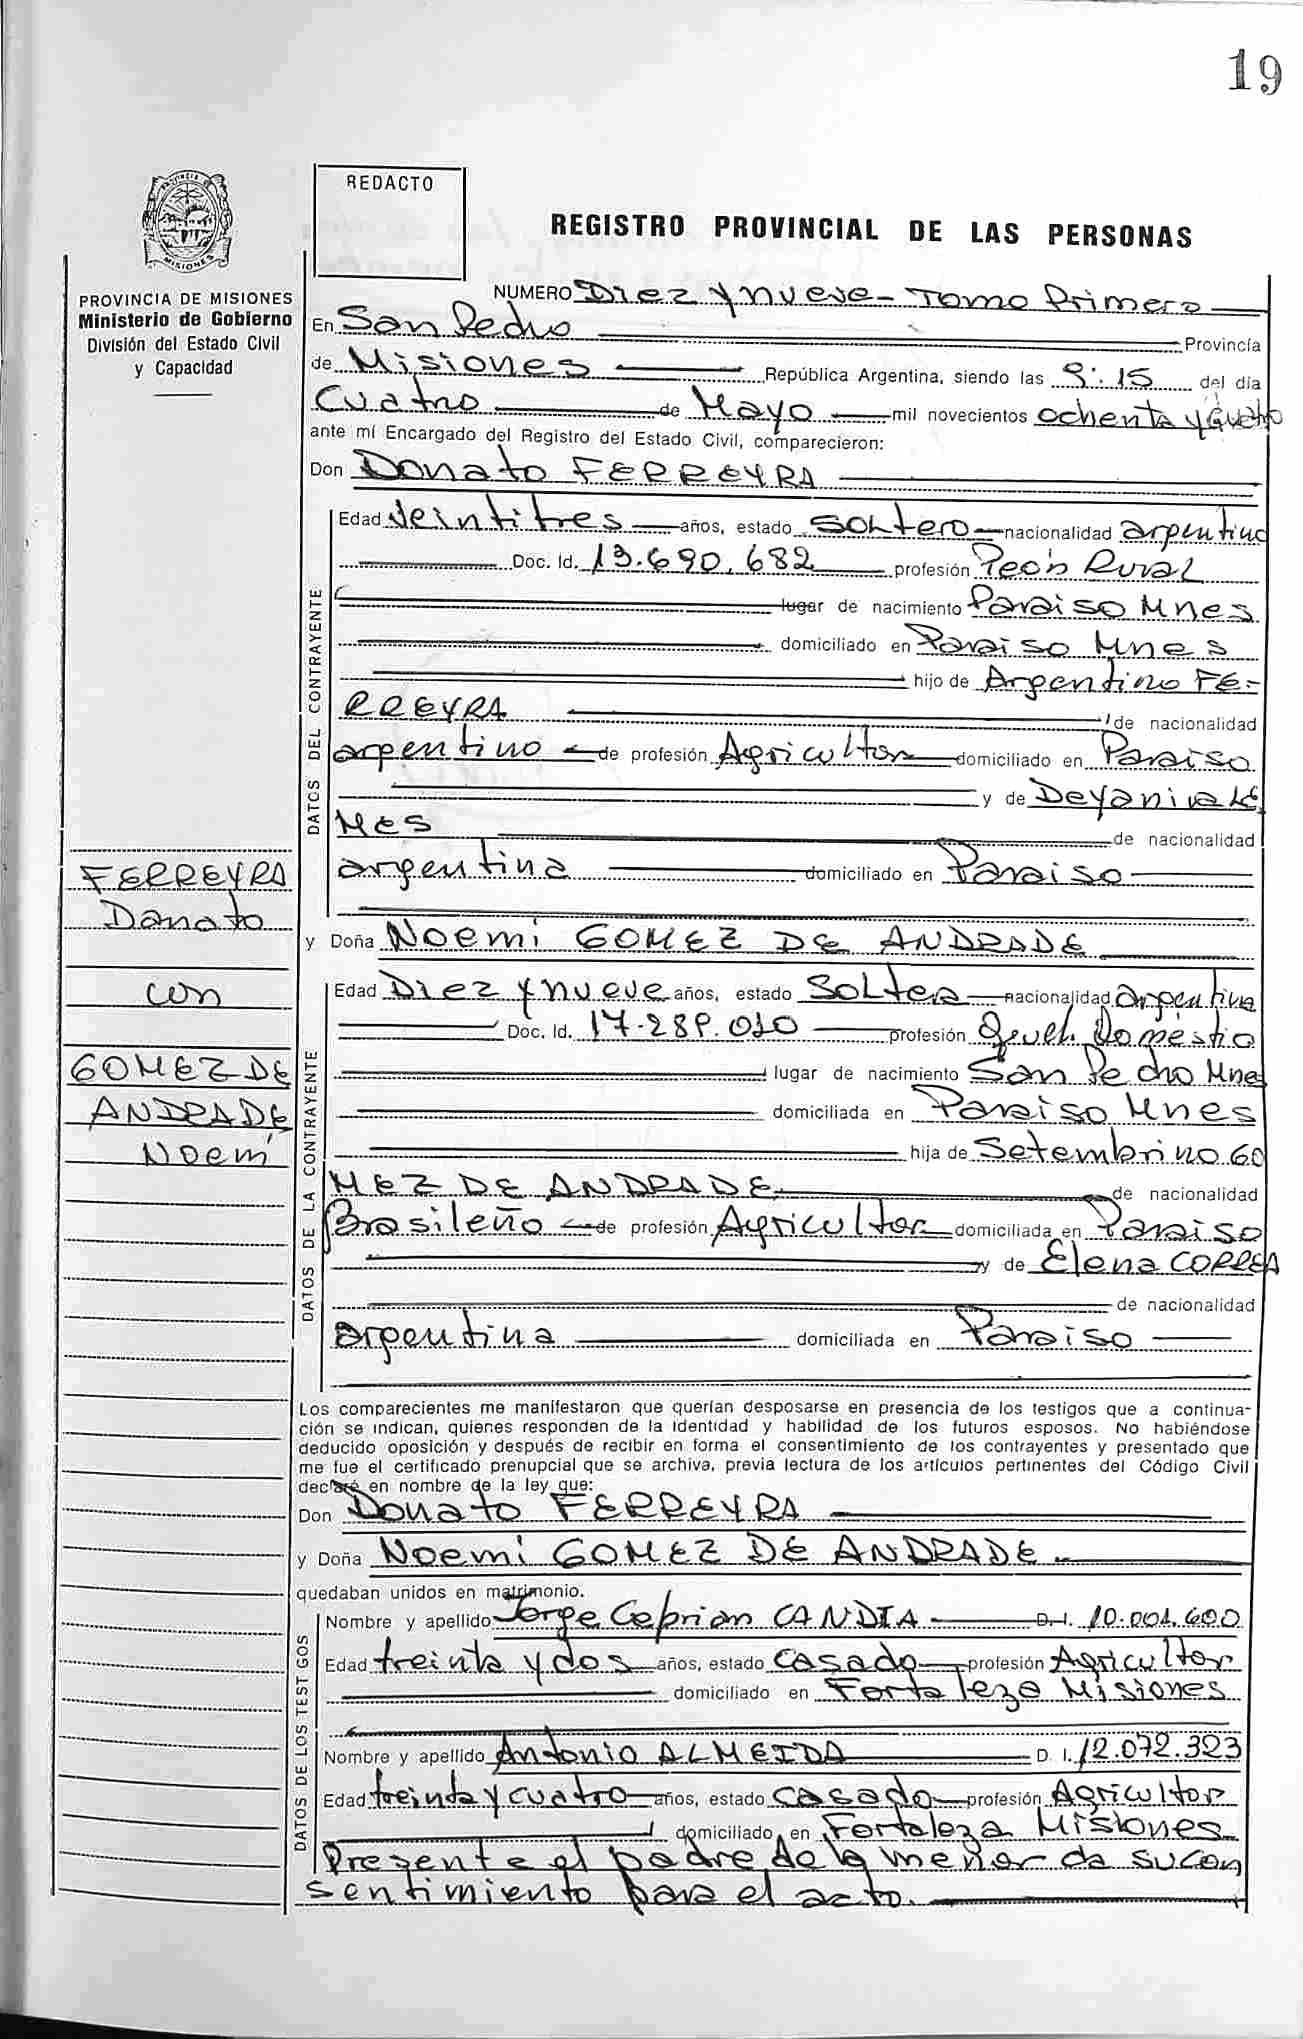 19
REDACTO
REGISTRO PROVINCIAL DE LAS PERSONAS
PROVINCIA DE MISIONES
Ministerio de Gobierno
División del Estado Civil
y Capacidad
NUMERO Diez y nueve - Tomo Primero
En San Pedro Provincia
de Misiones República Argentina, siendo las 9:15 del día
Cuatro de Mayo mil novecientos ochenta y Cuatro
ante mí Encargado del Registro del Estado Civil, comparecieron:
Don Donato FERREYRA
DATOS DEL CONTRAYENTE
Edad Veintitres años, estado Soltero nacionalidad argentino
Doc. Id. 13.690.682 profesión Peón Rural
lugar de nacimiento Paraiso Mnes
domiciliado en Paraiso Mnes
hijo de Argentino FE-
RREYRA de nacionalidad
argentino de profesión Agricultor domiciliado en Paraiso
y de Deyanira LE
MES de nacionalidad
argentina domiciliado en Paraiso
FERREYRA
Donato
con
GOMEZ DE
ANDRADE
Noemí
y Doña Noemi GOMEZ DE ANDRADE
DATOS DE LA CONTRAYENTE
Edad Diez y nueve años, estado Soltera nacionalidad argentina
Doc. Id. 17.289.010 profesión Doméstic
lugar de nacimiento San Pedro Mnes
domiciliada en Paraiso Mnes
hija de Setembrino GO
MEZ DE ANDRADE de nacionalidad
Brasileño de profesión Agricultor domiciliada en Paraiso
y de Elena CORREA
de nacionalidad
argentina domiciliada en Paraiso
Los comparecientes me manifestaron que querían desposarse en presencia de los testigos que a continua-
ción se indican, quienes responden de la identidad y habilidad de los futuros esposos. No habiéndose
deducido oposición y después de recibir en forma el consentimiento de los contrayentes y presentado que
me fue el certificado prenupcial que se archiva, previa lectura de los artículos pertinentes del Código Civil
declaré en nombre de la ley que:
Don Donato FERREYRA
y Doña Noemi GOMEZ DE ANDRADE
quedaban unidos en matrimonio.
DATOS DE LOS TESTIGOS
Nombre y apellido Jorge Ceprian CANDIA D.I. 10.001.600
Edad treinta y dos años, estado Casado profesión Agricultor
domiciliado en Fortaleza Misiones
Nombre y apellido Antonio ALMEIDA D.I. 12.072.323
Edad treinta y cuatro años, estado Casado profesión Agricultor
domiciliado en Fortaleza Misiones
Presente el padre de la menor da su con
sentimiento para el acto.